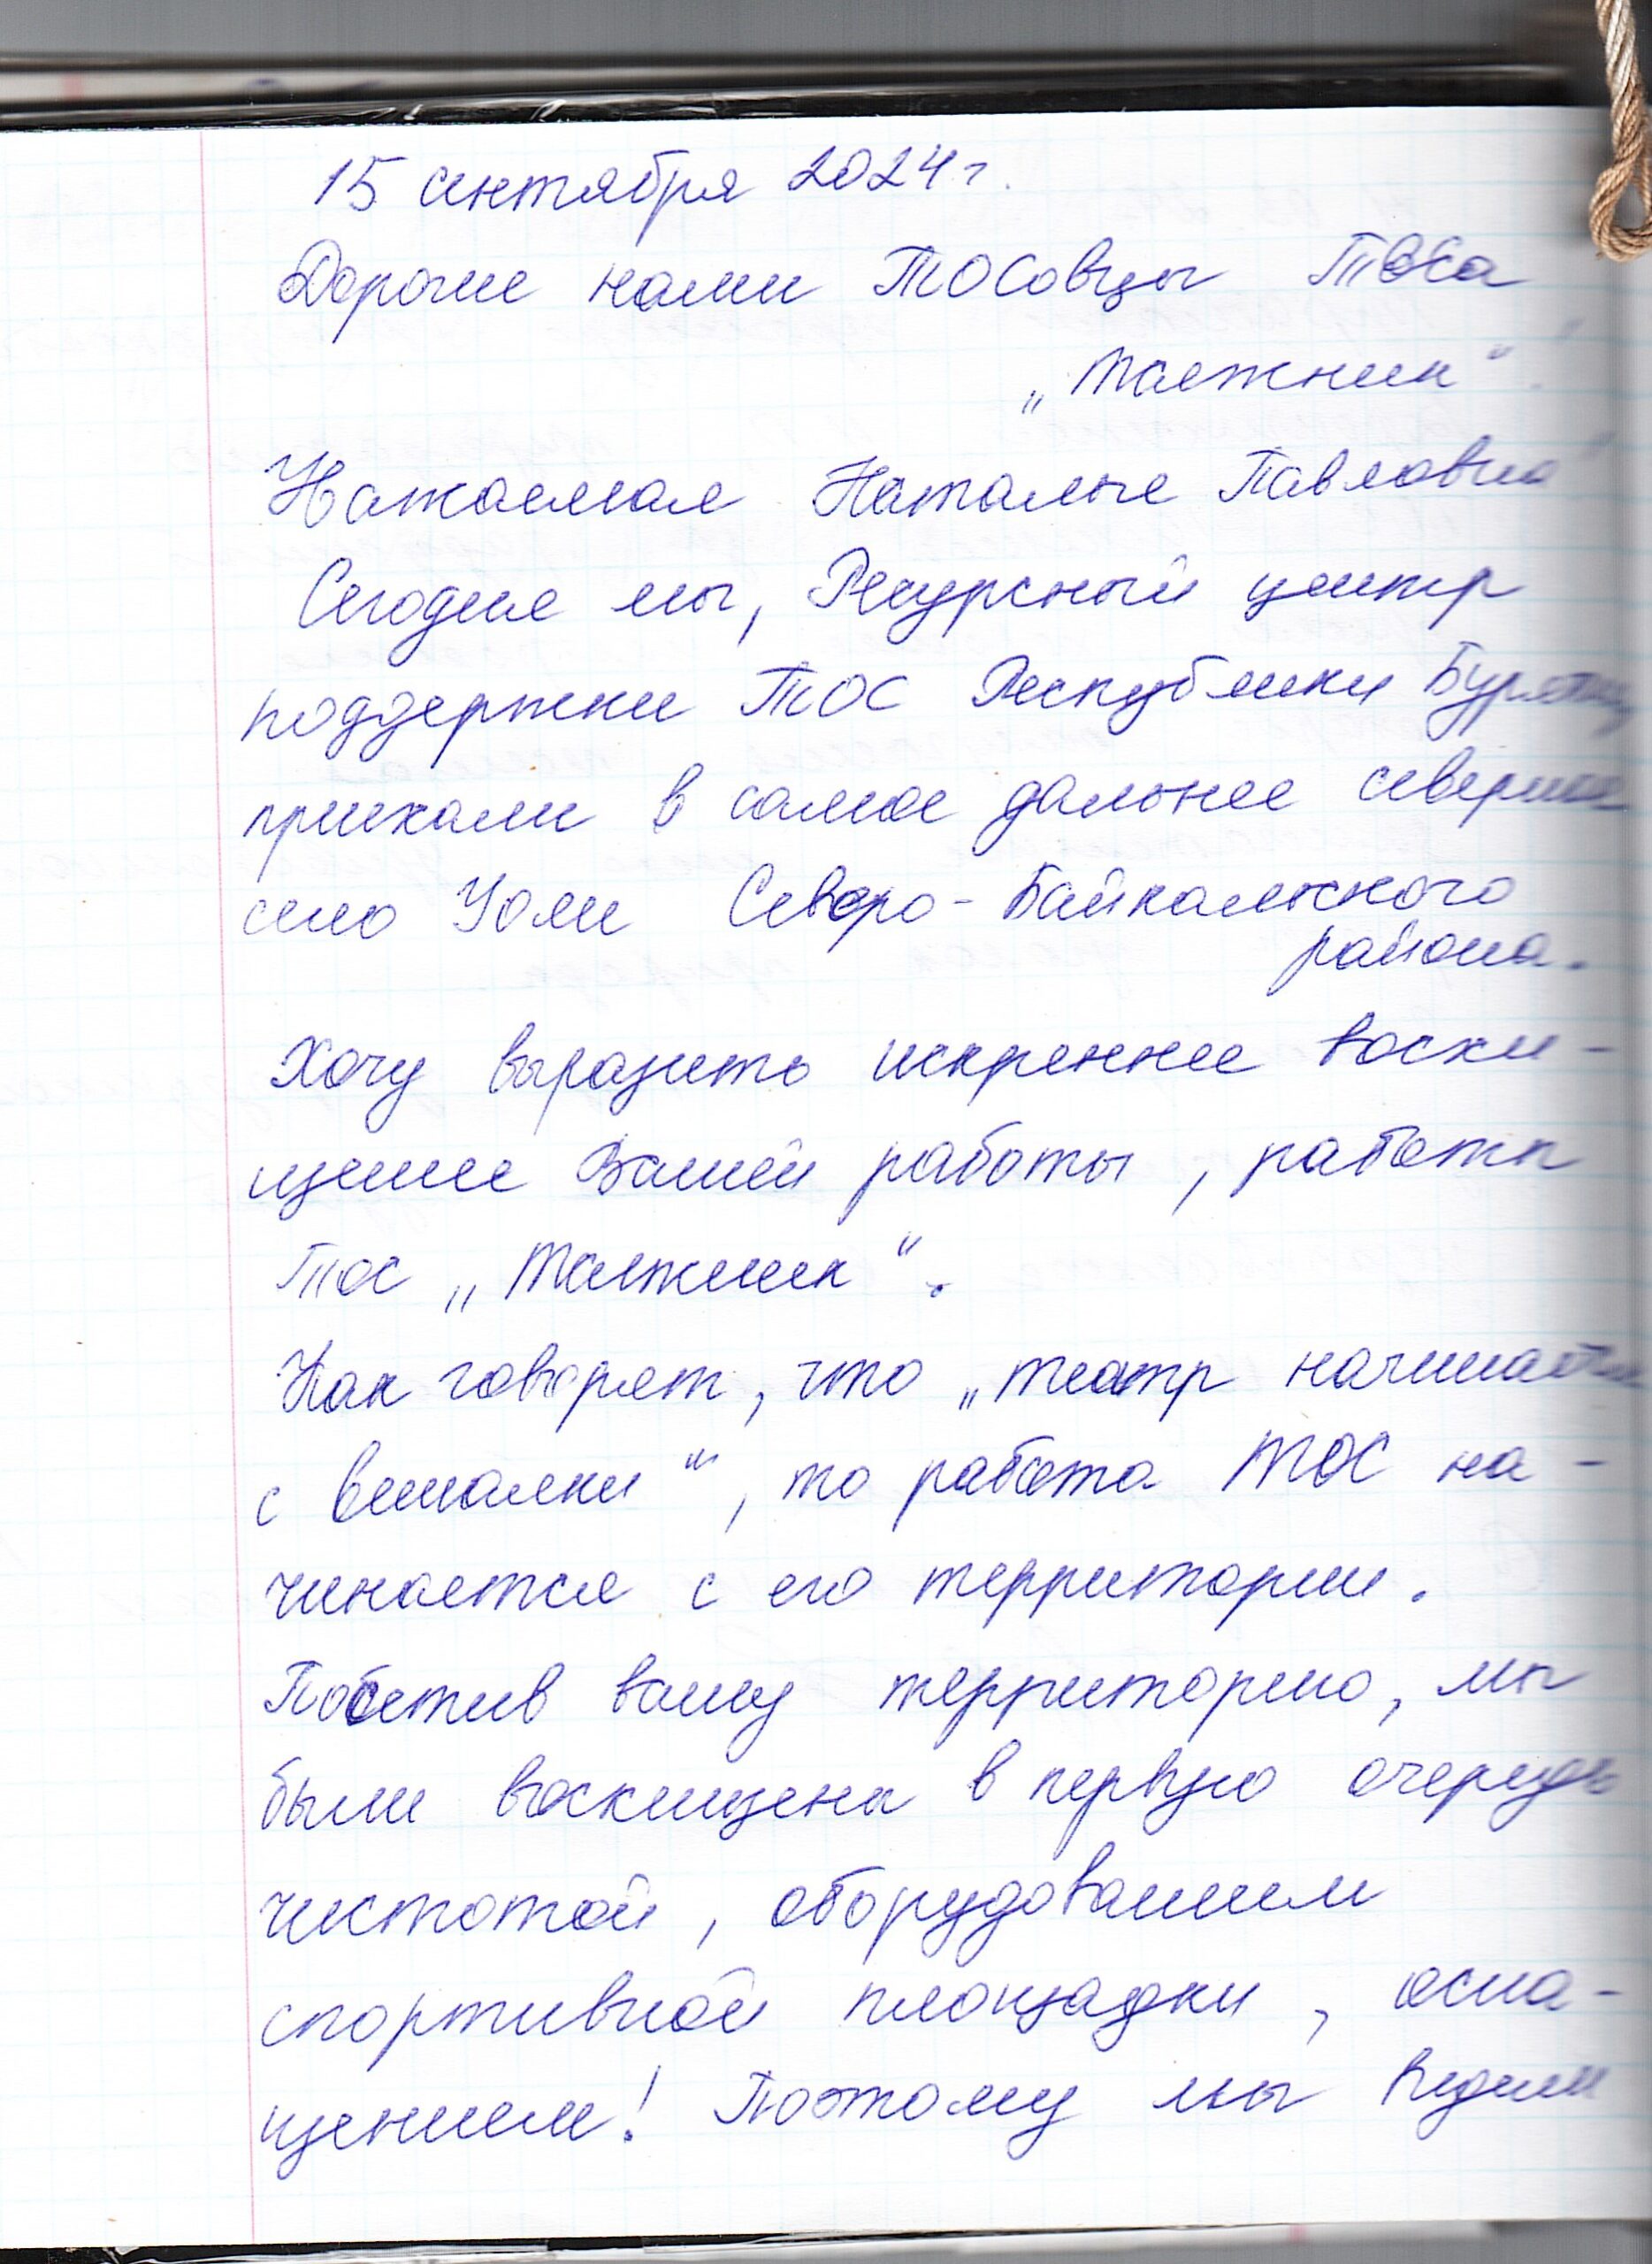 15 сентября 2024 г.
Дорогие нами ТОСовцы ТОСа
„Таежник".
Уважаемая Наталья Павловна
Сегодня мы, Ресурсный центр
поддержки ТОС Республики Бурятия
приехали в самое дальнее северное
село Уоян Северо-Байкальского
района.
Хочу выразить искреннее восхи-
щение Вашей работы, работы
ТОС „Таежник".
Как говорят, что „театр начинается
с вешалки", то работа ТОС на-
чинается с его территории.
Посетив вашу территорию, мы
были восхищены в первую очередь
чистотой, оборудованием
спортивной площадки, осна-
щением! Поэтому мы видим